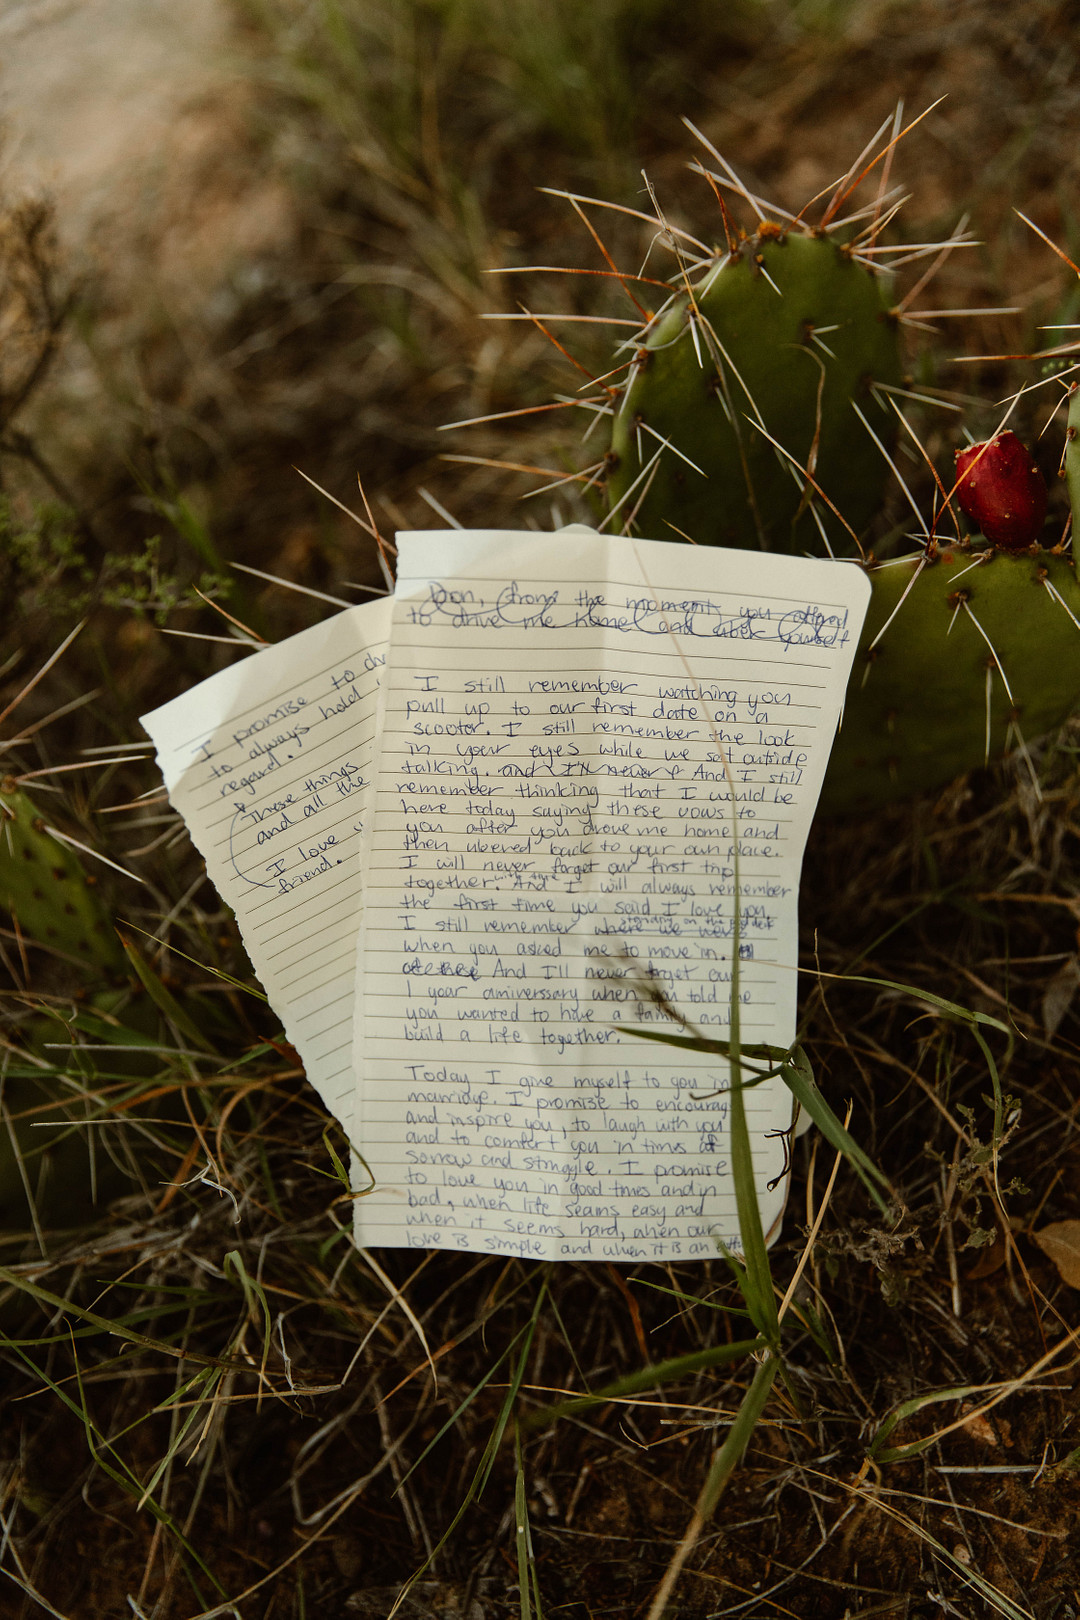 from the moment you offered
to drive me home and uber yourself
I still remember watching you
pull up to our first date on a
scooter. I still remember the look
in your eyes while we sat outside
talking. and I'll never And I still
remember thinking that I would be
here today saying these vows to
you after you drove me home and
then ubered back to your own place.
I will never forget our first trip
together. And I will always remember
the first time you said I love you.
standing on the
I still remember where we were
when you asked me to move in.
And I'll never forget our
1 year anniverssary when you told me
you wanted to have a family and
build a life together.
Today I give myself to you in
marriage. I promise to encourage
and inspire you, to laugh with you
and to comfort you in times of
sorrow and struggle. I promise
to love you in good times and in
bad, when life seams easy and
when it seems hard, when our
love is simple and when it is an
I promise to
to always hold
regard.
These things
and all the
I love
friend.